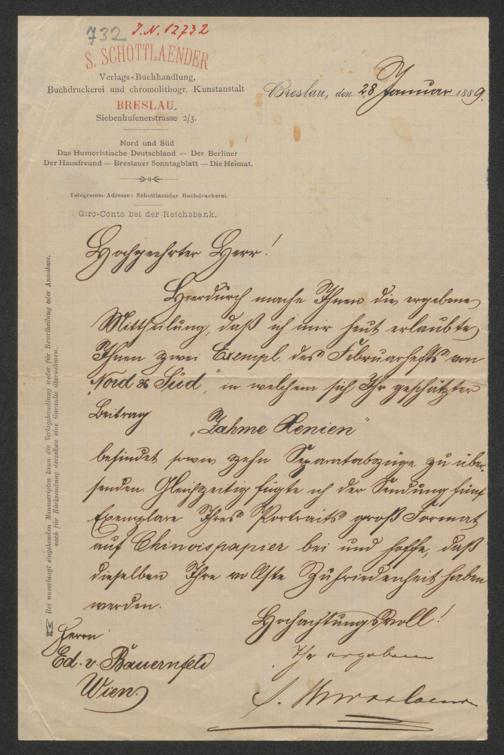 732 I.N. 12732
S. SCHOTTLAENDER
Verlags-Buchhandlung,
Buchdruckerei und chromolithogr. Kunstanstalt
BRESLAU.
Siebenhufenerstrasse 2/3.
Breslau, den 28 Januar 1889.
Nord und Süd
Das Humoristische Deutschland — Der Berliner
Der Hausfreund — Breslauer Sonntagblatt — Die Heimat.
Telegramm-Adresse: Schottlaender Buchdruckerei.
Giro-Conto bei der Reichsbank.
Hochgeehrter Herr!
Hierdurch mache Ihnen die ergebene
Mittheilung, daß ich mir heut erlaubte
Ihnen zwei Exempl. des Februarhefts von
"Nord & Süd", in welchem sich Ihr geschätzter
Beitrag "Zahme Xenien"
befindet sowie zehn Separatabzüge zu über-
senden. Gleichzeitig fügte ich der Sendung fünf
Exemplare Ihres Portraits groß Format
auf Chinoispapier bei und hoffe, daß
dieselben Ihre vollste Zufriedenheit haben
werden.
Hochachtungsvoll!
Ihr ergebener
S. Schottlaender
Herrn
Ed. v. Bauernfeld
Wien
Bei unverlangt eingehenden Manuscripten kann die Verlagshandlung weder für Beurtheilung oder Annahme,
noch für Rücksendung derselben eine Garantie übernehmen.